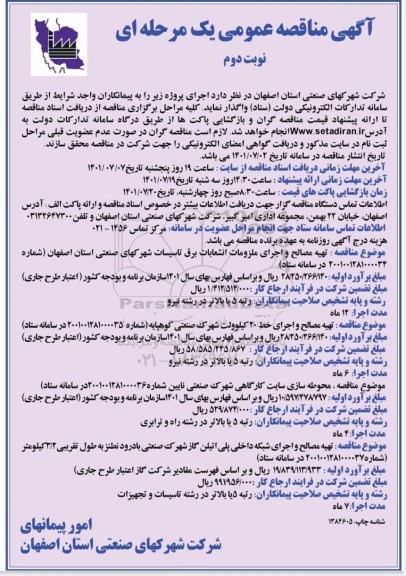 آگهی مناقصه عمومی یک مرحله ای
نوبت دوم
شرکت شهرکهای صنعتی استان اصفهان در نظر دارد اجرای پروژه زیر را به پیمانکاران واجد شرایط از طریق
سامانه تدارکات الکترونیکی دولت (ستاد) واگذار نماید. کلیه مراحل برگزاری مناقصه از دریافت اسناد مناقصه
تا ارائه پیشنهاد قیمت مناقصه گران و بازگشایی پاکت ها از طریق درگاه سامانه تدارکات دولت به
آدرس www.setadiran.ir انجام خواهد شد. لازم است مناقصه گران در صورت عدم عضویت قبلی مراحل
ثبت نام در سایت مذکور و دریافت گواهی امضای الکترونیکی را جهت شرکت در مناقصه محقق سازند.
تاریخ انتشار مناقصه در سامانه تاریخ ۱۴۰۱/۰۷/۰۲ می باشد.
آخرین مهلت زمانی دریافت اسناد مناقصه از سایت : ساعت ۱۹ روز پنجشنبه تاریخ ۱۴۰۱/۰۷/۰۷
آخرین مهلت زمانی ارائه پیشنهاد : ساعت ۱۴:۳۰ روز سه شنبه تاریخ ۱۴۰۱/۰۷/۱۹
زمان بازگشایی پاکت های قیمت : ساعت ۸:۳۰ صبح روز چهارشنبه، تاریخ ۱۴۰۱/۰۷/۲۰
اطلاعات تماس دستگاه مناقصه گزار جهت دریافت اطلاعات بیشتر در خصوص اسناد مناقصه و ارائه پاکت الف : آدرس
اصفهان، خیابان ۲۲ بهمن، مجموعه اداری امیرکبیر، شرکت شهرکهای صنعتی استان اصفهان و تلفن ۰۳۱۳۲۶۴۷۳۰۰
اطلاعات تماس سامانه ستاد جهت انجام مراحل عضویت در سامانه: مرکز تماس ۱۴۵۶ - ۰۲۱
هزینه درج آگهی روزنامه به عهده برنده مناقصه می باشد.
موضوع مناقصه : تهیه مصالح و اجرای ملزومات انشعابات برق تاسیسات شهرکهای صنعتی استان اصفهان (شماره
۲۰۰۱۰۰۱۲۸۱۰۰۰۰۳۴ در سامانه ستاد)
مبلغ برآورد اولیه : ۲۸۲۵۰۲۶۶۱۴۰ ریال و براساس فهارس بهای سال ۱۴۰۱ سازمان برنامه و بودجه کشور ( اعتبار طرح جاری)
مبلغ تضمین شرکت در فرآیند ارجاع کار : ۱/۴۱۲/۵۱۴/۰۰۰ ریال
رشته و پایه تشخیص صلاحیت پیمانکاران: رتبه ۵ یا بالاتر در رشته نیرو
مدت اجرا: ۱۲ ماه
موضوع مناقصه : تهیه مصالح و اجرای خط ۲۰ کیلوولت شهرک صنعتی کوهپایه (شماره ۲۰۰۱۰۰۱۲۸۱۰۰۰۰۳۵ در سامانه ستاد)
مبلغ برآورد اولیه : ۲۸۲۵۰۲۶۶۱۴۰ ریال و براساس فهارس بهای سال ۱۴۰۱ سازمان برنامه و بودجه کشور (اعتبار طرح جاری)
مبلغ تضمین شرکت در فرآیند ارجاع کار : ریال
رشته و پایه تشخیص صلاحیت پیمانکاران: رتبه ۵ یا بالاتر در رشته نیرو
مدت اجرا: ۶ ماه
موضوع مناقصه ، محوطه سازی سایت کارگاهی شهرک صنعتی نایین شماره ۲۰۰۱۰۰۱۲۸۱۰۰۰۰۳۶ در سامانه ستاد)
مبلغ برآورد اولیه: ۱۰/۵۹۷/۴۷۸۷۹۷ ریال و براساس فهرس بهای سال ۱۴۰۱ سازمان برنامه و بودجه کشور (اعتبار طرح جاری)
مبلغ تضمین شرکت در فرآیند ارجاع کار : ۵۲۹/۸۷۴/۰۰۰ ریال
رشته و پایه تشخیص صلاحیت پیمانکاران: رتبه ۵ یا بالاتر در رشته راه و ترابری
مدت اجرا: ۴ ماه
موضوع مناقصه : تهیه مصالح و اجرای شبکه داخلی پلی اتیلن گاز شهرک صنعتی بادرود نطنز به طول تقریبی ۳/۲ کیلومتر
(شماره ۲۰۰۱۰۰۱۲۸۱۰۰۰۰۳۷ در سامانه ستاد)
مبلغ برآورد اولیه : ۱۹/۸۳۹/۱۱۳/۹۳۳ ریال و بر اساس فهرست مقادیر شرکت گاز (اعتبار طرح جاری)
مبلغ تضمین شرکت در فرآیند ارجاع کار : ۹۹۱۹۵۶/۰۰۰ ریال
رشته و پایه تشخیص صلاحیت پیمانکاران: رتبه ۵ یا بالاتر در رشته تاسیسات و تجهیزات
مدت اجرا: ۷ ماه
شناسه چاپ: ۱۳۸۴۶۰۵
امور پیمانهای
شرکت شهرکهای صنعتی استان اصفهان